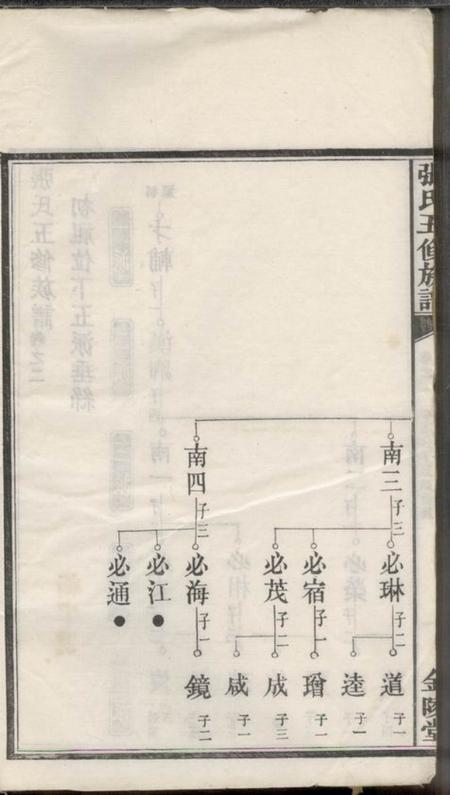 張氏五修族譜
金陵堂
南三 子三
必琳 子二
道 子一
逵 子一
必宿 子一
璔 子一
必茂 子二
成 子三
咸 子一
南四 子三
必海 子一
鏡 子二
必江●
必通●